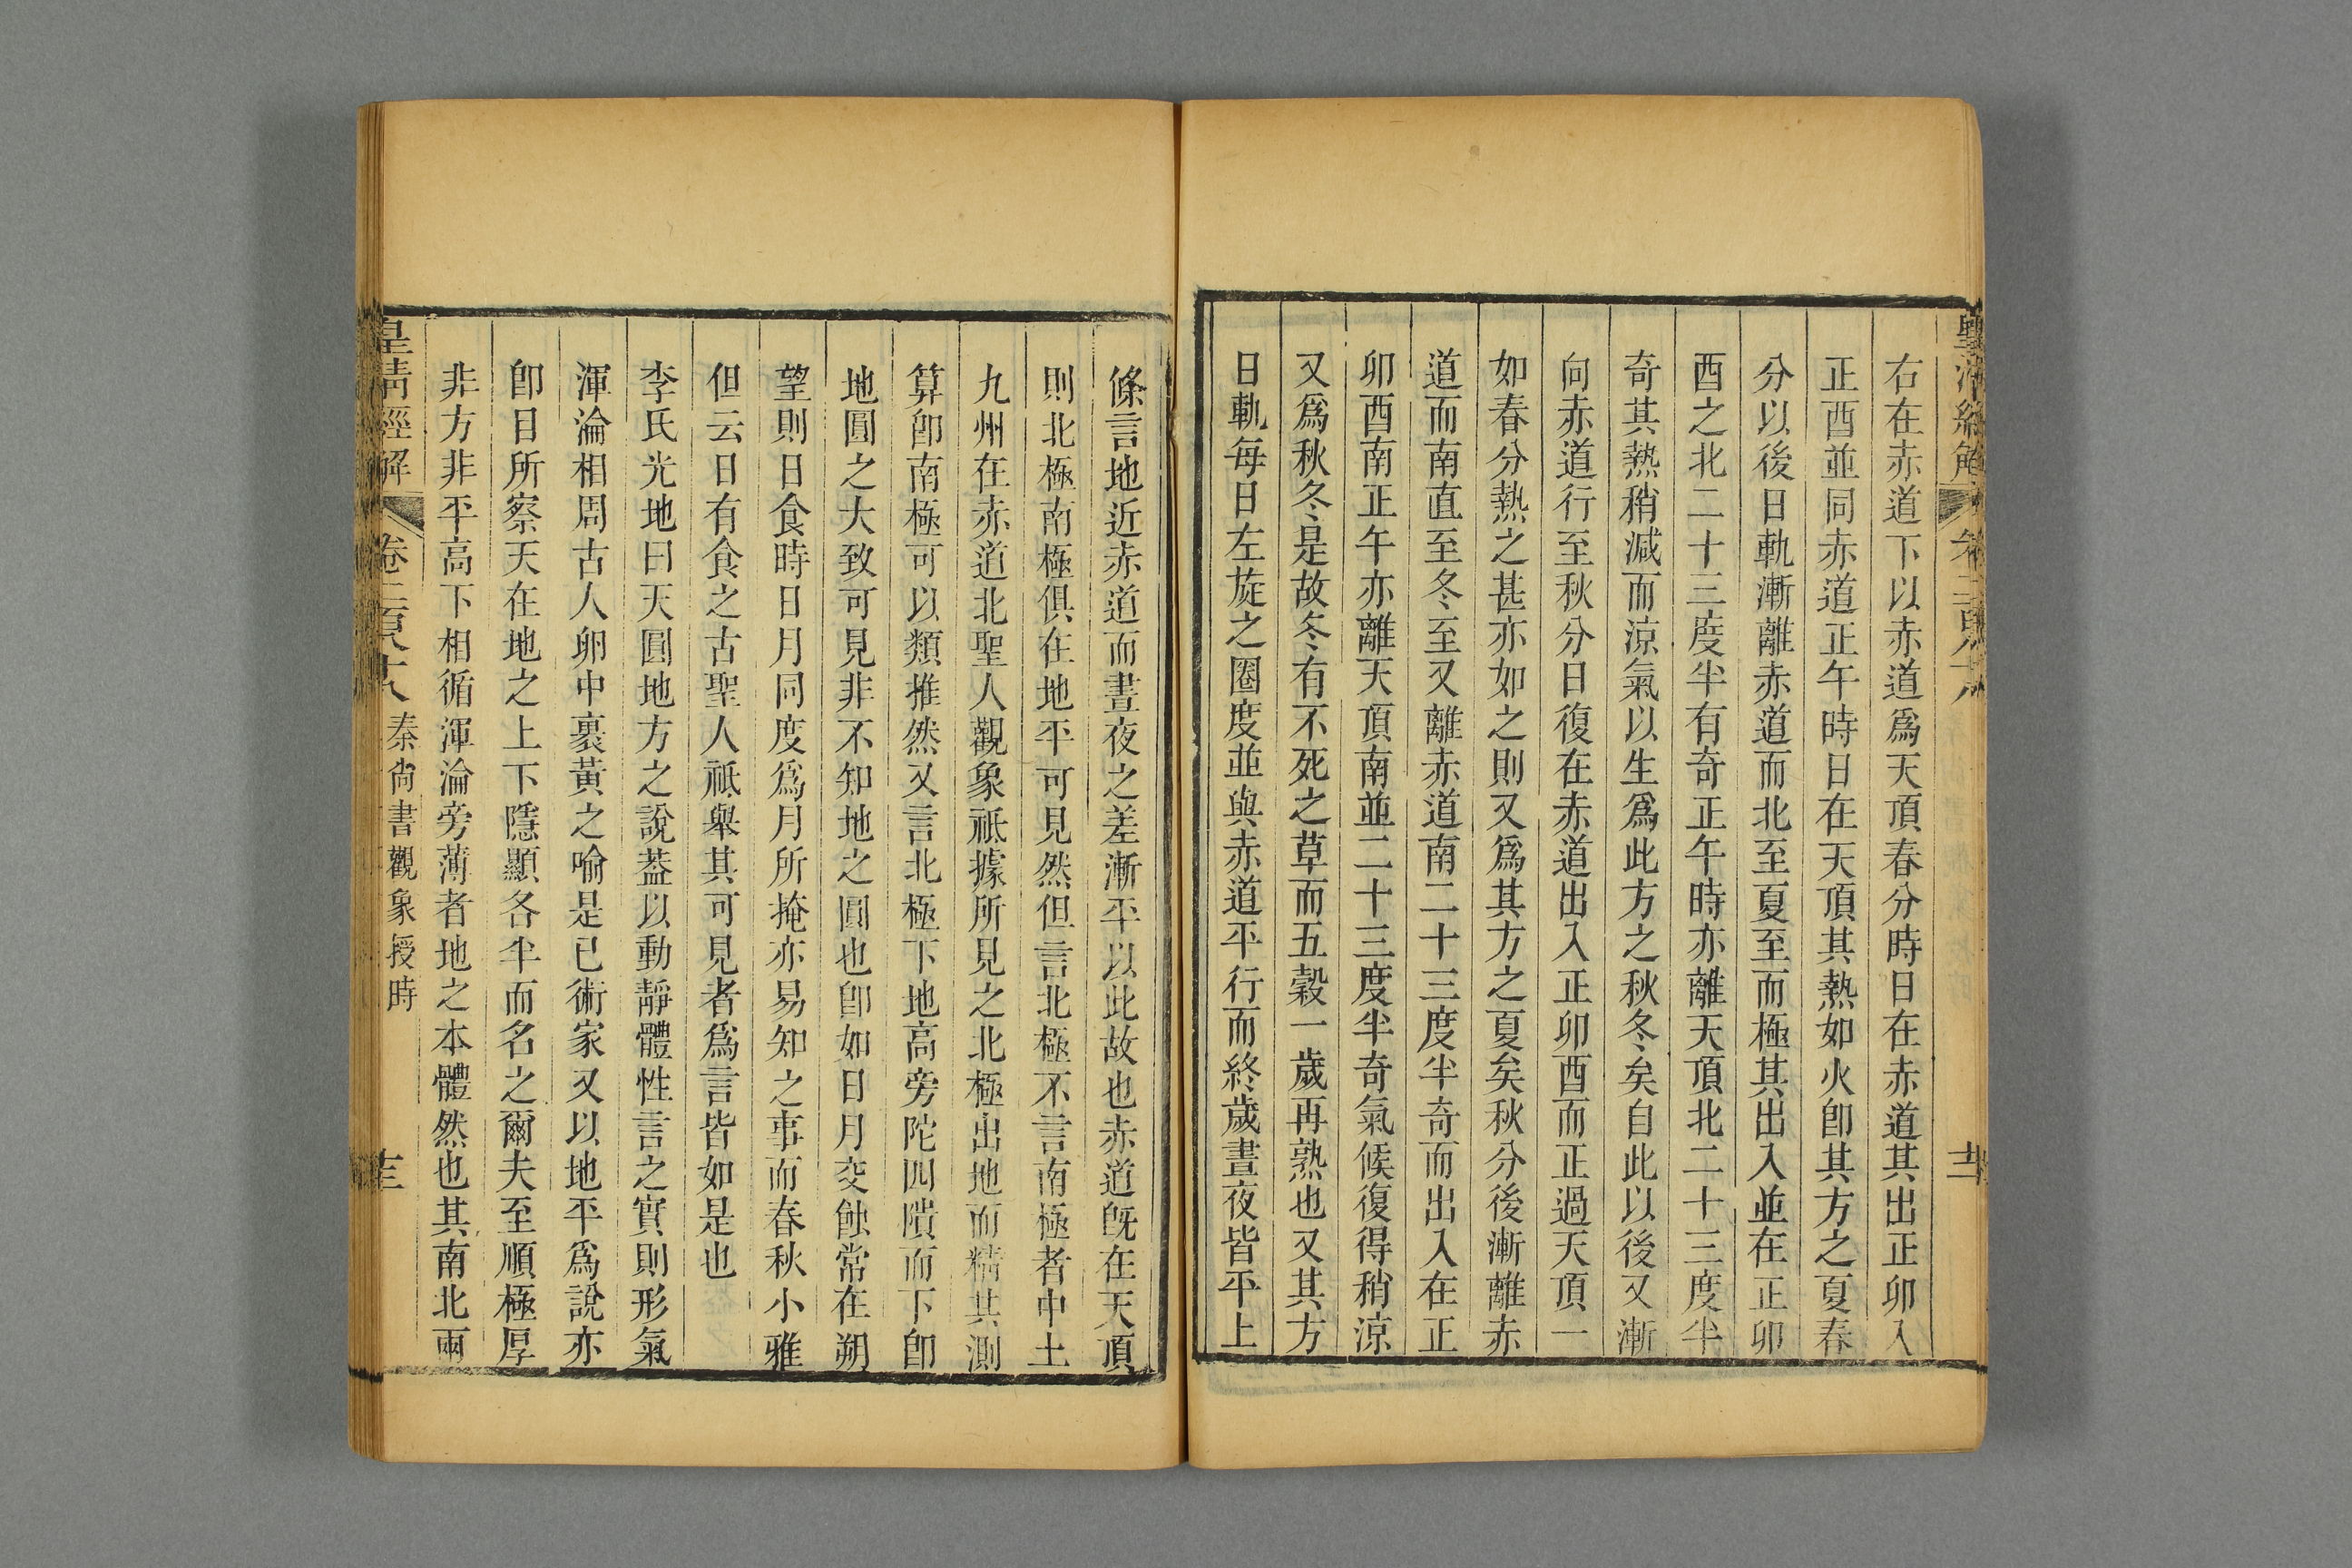 右在赤道下以赤道爲天頂春分時日在赤道其出正卯入
正酉並同赤道正午時日在天頂其熱如火卽其方之夏春
分以後日軌漸離赤道而北至夏至而極其出入並在正卯
酉之北二十三度半有奇正午時亦離天頂北二十三度半
奇其熱稍減而涼氣以生爲此方之秋冬矣自此以後又漸
向赤道行至秋分日復在赤道出入正卯酉而正過天頂一
如春分熱之甚亦如之則又爲其方之夏矣秋分後漸離赤
道而南直至冬至又離赤道南二十三度半奇而出入在正
卯酉南正午亦離天頂南並二十三度半奇氣候復得稍涼
又爲秋冬是故冬有不死之草而五穀一歲再熟也又其方
日軌每日左旋之圈度並與赤道平行而終歲晝夜皆平上
條言地近赤道而晝夜之差漸平以此故也赤道旣在天頂
則北極南極俱在地平可見然但言北極不言南極者中土
九州在赤道北聖人觀象祗據所見之北極出地而精其測
算卽南極可以類推然又言北極下地高旁陀四隤而下卽
地圓之大致可見非不知地之圓也卽如日月交蝕常在朔
望則日食時日月同度爲月所掩亦易知之事而春秋小雅
但云日有食之古聖人祗舉其可見者爲言皆如是也
李氏光地曰天圓地方之說葢以動靜體性言之實則形氣
渾淪相周古人卵中裹黃之喻是已術家又以地平爲說亦
卽日所察天在地之上下隱顯各半而名之爾夫至順極厚
非方非平高下相循渾淪旁薄者地之本體然也其南北兩
皇清經解
秦尚書觀象授時